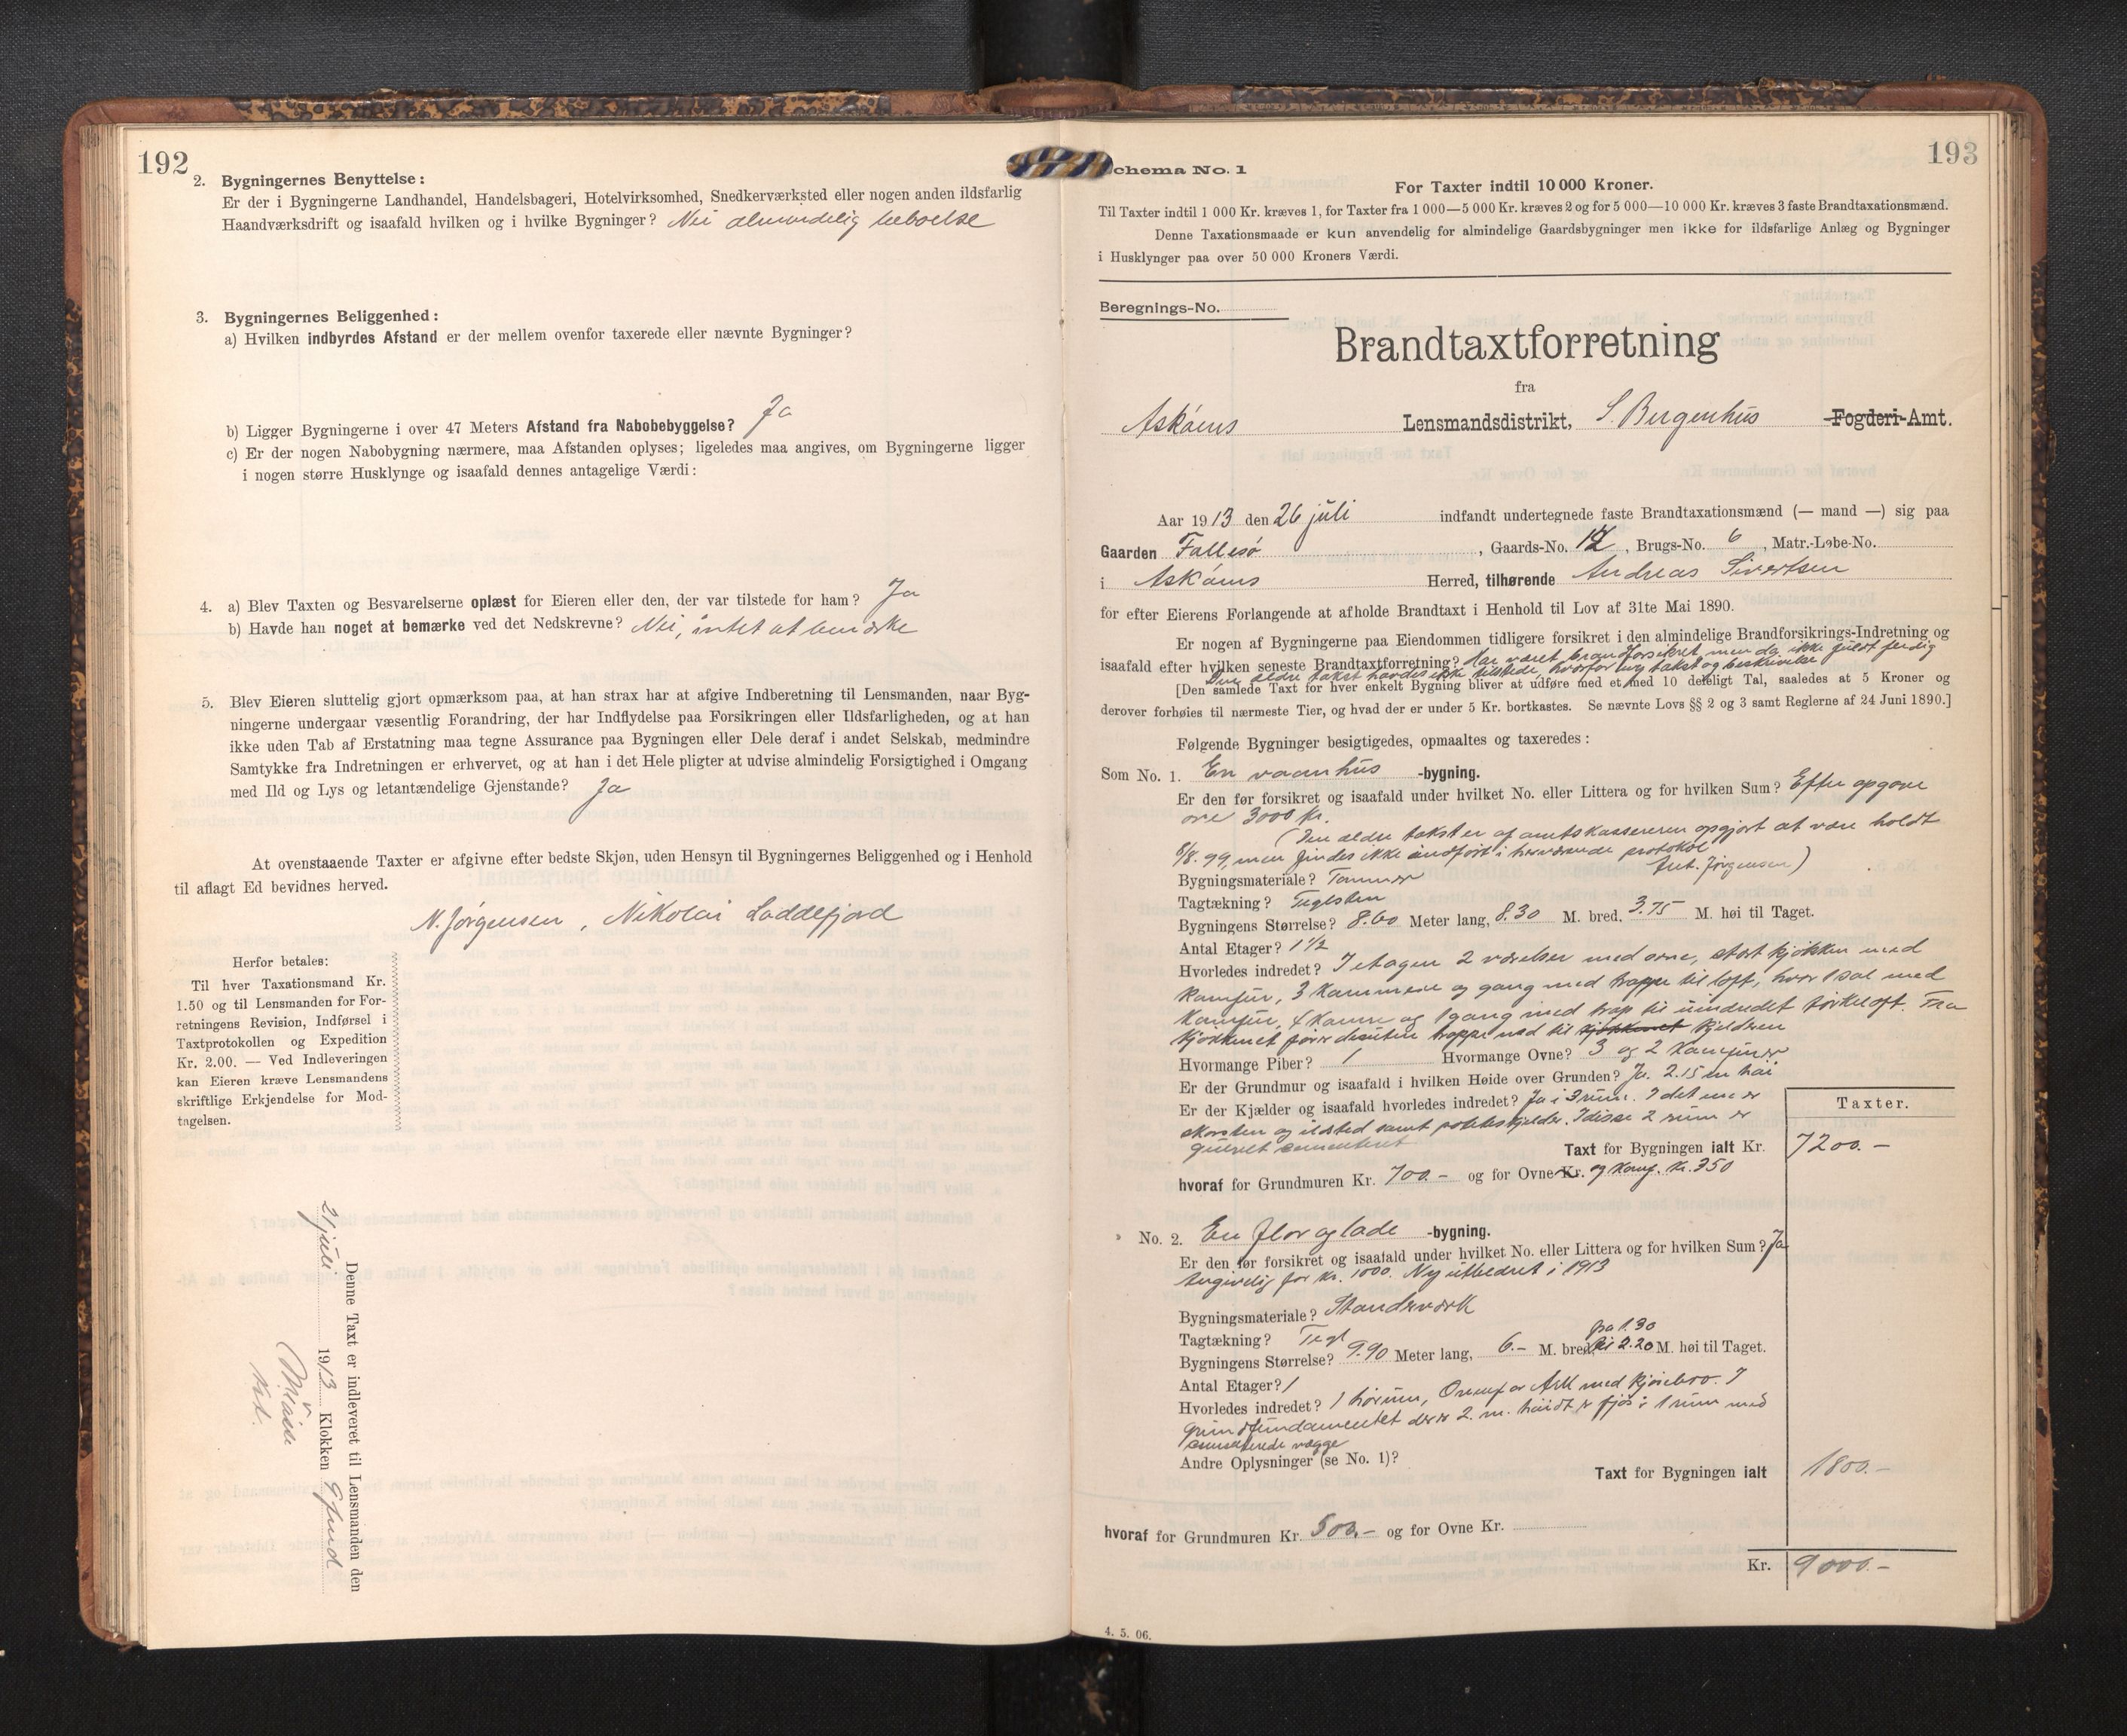 192
2. Bygningernes Benyttelse:
Er der i Bygningerne Landhandel, Handelsbageri, Hotelvirksomhed, Snedkerværksted eller nogen anden ildsfarlig
Haandværksdrift og isaafald hvilken og i hvilke Bygninger? Nei almindelig beboelse
3. Bygningernes Beliggenhed:
a) Hvilken indbyrdes Afstand er der mellem ovenfor taxerede eller nævnte Bygninger?
b) Ligger Bygningerne i over 47 Meters Afstand fra Nabobebyggelse? Ja
c) Er der nogen Nabobygning nærmere, maa Afstanden oplyses; ligeledes maa angives, om Bygningerne ligger
i nogen større Husklynge og isaafald dennes antagelige Værdi:
4. a) Blev Taxten og Besvarelserne oplæst for Eieren eller den, der var tilstede for ham? Ja
b) Havde han noget at bemærke ved det Nedskrevne? Nei, intet at bemærke
5. Blev Eieren sluttelig gjort opmærksom paa, at han strax har at afgive Indberetning til Lensmanden, naar Byg-
ningerne undergaar væsentlig Forandring, der har Indflydelse paa Forsikringen eller Ildsfarligheden, og at han
ikke uden Tab af Erstatning maa tegne Assurance paa Bygningen eller Dele deraf i andet Selskab, medmindre
Samtykke fra Indretningen er erhvervet, og at han i det Hele pligter at udvise almindelig Forsigtighed i Omgang
med Ild og Lys og letantændelige Gjenstande? Ja
At ovenstaaende Taxter er afgivne efter bedste Skjøn, uden Hensyn til Bygningernes Beliggenhed og i Henhold
til aflagt Ed bevidnes herved.
N. Jørgensen, Nikolai Loddefjord
Herfor betales:
Til hver Taxationsmand Kr.
1.50 og til Lensmanden for For-
retningens Revision, Indførsel i
Taxtprotokollen og Expedition
Kr. 2.00. — Ved Indleveringen
kan Eieren kræve Lensmandens
skriftlige Erkjendelse for Mod-
tagelsen.
Denne Taxt er indleveret til Lensmanden den
21 juli 1913 Klokken
Schema No. 1
193
For Taxter indtil 10 000 Kroner.
Til Taxter indtil 1 000 Kr. kræves 1, for Taxter fra 1 000—5 000 Kr. kræves 2 og for 5 000—10 000 Kr. kræves 3 faste Brandtaxationsmænd.
Denne Taxationsmaade er kun anvendelig for almindelige Gaardsbygninger men ikke for ildsfarlige Anlæg og Bygninger
i Husklynger paa over 50 000 Kroners Værdi.
Beregnings-No.
Brandtaxtforretning
fra
Askøens Lensmandsdistrikt, S. Bergenhus Fogderi-Amt.
Aar 1913 den 26 juli indfandt undertegnede faste Brandtaxationsmænd (— mand —) sig paa
Gaarden Follesø, Gaards-No. 12, Brugs-No. 6, Matr.-Løbe-No.
i Askøens Herred, tilhørende Andreas Sivertsen
for efter Eierens Forlangende at afholde Brandtaxt i Henhold til Lov af 31te Mai 1890.
Er nogen af Bygningerne paa Eiendommen tidligere forsikret i den almindelige Brandforsikrings-Indretning og
isaafald efter hvilken seneste Brandtaxtforretning? Har været brandforsikret, men da ikke fuldt ferdig
Den ældre takst havdes ikke tilstede, hvorfor ny takst og beskrivelse
[Den samlede Taxt for hver enkelt Bygning bliver at udføre med et med 10 deleligt Tal, saaledes at 5 Kroner og
derover forhøies til nærmeste Tier, og hvad der er under 5 Kr. bortkastes. Se nævnte Lovs §§ 2 og 3 samt Reglerne af 24 Juni 1890.]
Følgende Bygninger besigtigedes, opmaaltes og taxeredes:
Som No. 1. En vaanhus -bygning.
Er den før forsikret og isaafald under hvilket No. eller Littera og for hvilken Sum? Efter opgave
3000 kr.
(Den ældre takst er af amtskassereren opgjort at være holdt
8/8. 99, men findes ikke indført i herværende protokol
Ant. Jørgensen)
Bygningsmateriale? Tømmer
Tagtækning? Teglsten
Bygningens Størrelse? 8.60 Meter lang, 8.30 M. bred, 3.75 M. høi til Taget.
Antal Etager? 1 1/2
Hvorledes indredet? I etagen 2 værelser med ovne, stort kjøkken med
kamfur, 3 kammere og gang med trappe til loft, hvor 1 sal med
kamfur, 4 kamre og 1 gang med trap til uindredet tørkeloft. Fra
kjøkkenet fører desuten trappe ned til kjøkkenet kjelderen
Hvormange Piber? 1 Hvormange Ovne? 3 og 2 kamfurer
Er der Grundmur og isaafald i hvilken Høide over Grunden? Ja. 2.15 m høi
Er der Kjælder og isaafald hvorledes indredet? Ja i 3 rum. I det ene er
skorsten og ildsted samt potetkjelder. I disse 2 rum er
gulvet cementeret
Taxter.
Taxt for Bygningen ialt Kr. 7200.-
hvoraf for Grundmuren Kr. 700.- og for Ovne Kr. og kamf. kr. 350
No. 2. En flor og lade -bygning.
Er den før forsikret og isaafald under hvilket No. eller Littera og for hvilken Sum? Ja
angivelig for kr. 1000. Ny utbedret i 1913
Bygningsmateriale? Standerværk
Tagtækning? Tegl
fra 1.30
Bygningens Størrelse? 9.90 Meter lang, 6.- M. bred, til 2.20 M. høi til Taget.
Antal Etager? 1
Hvorledes indredet? 1 hørum, Ovenfor Ark med kjørebro. I
grundfundamentet der er 2. m. høidt er fjøs i 1 rum med
cementerede vægge
Andre Oplysninger (se No. 1)?
Taxt for Bygningen ialt 1800.-
hvoraf for Grundmuren Kr. 500.- og for Ovne Kr.
Kr. 9000.-
4. 5. 06.